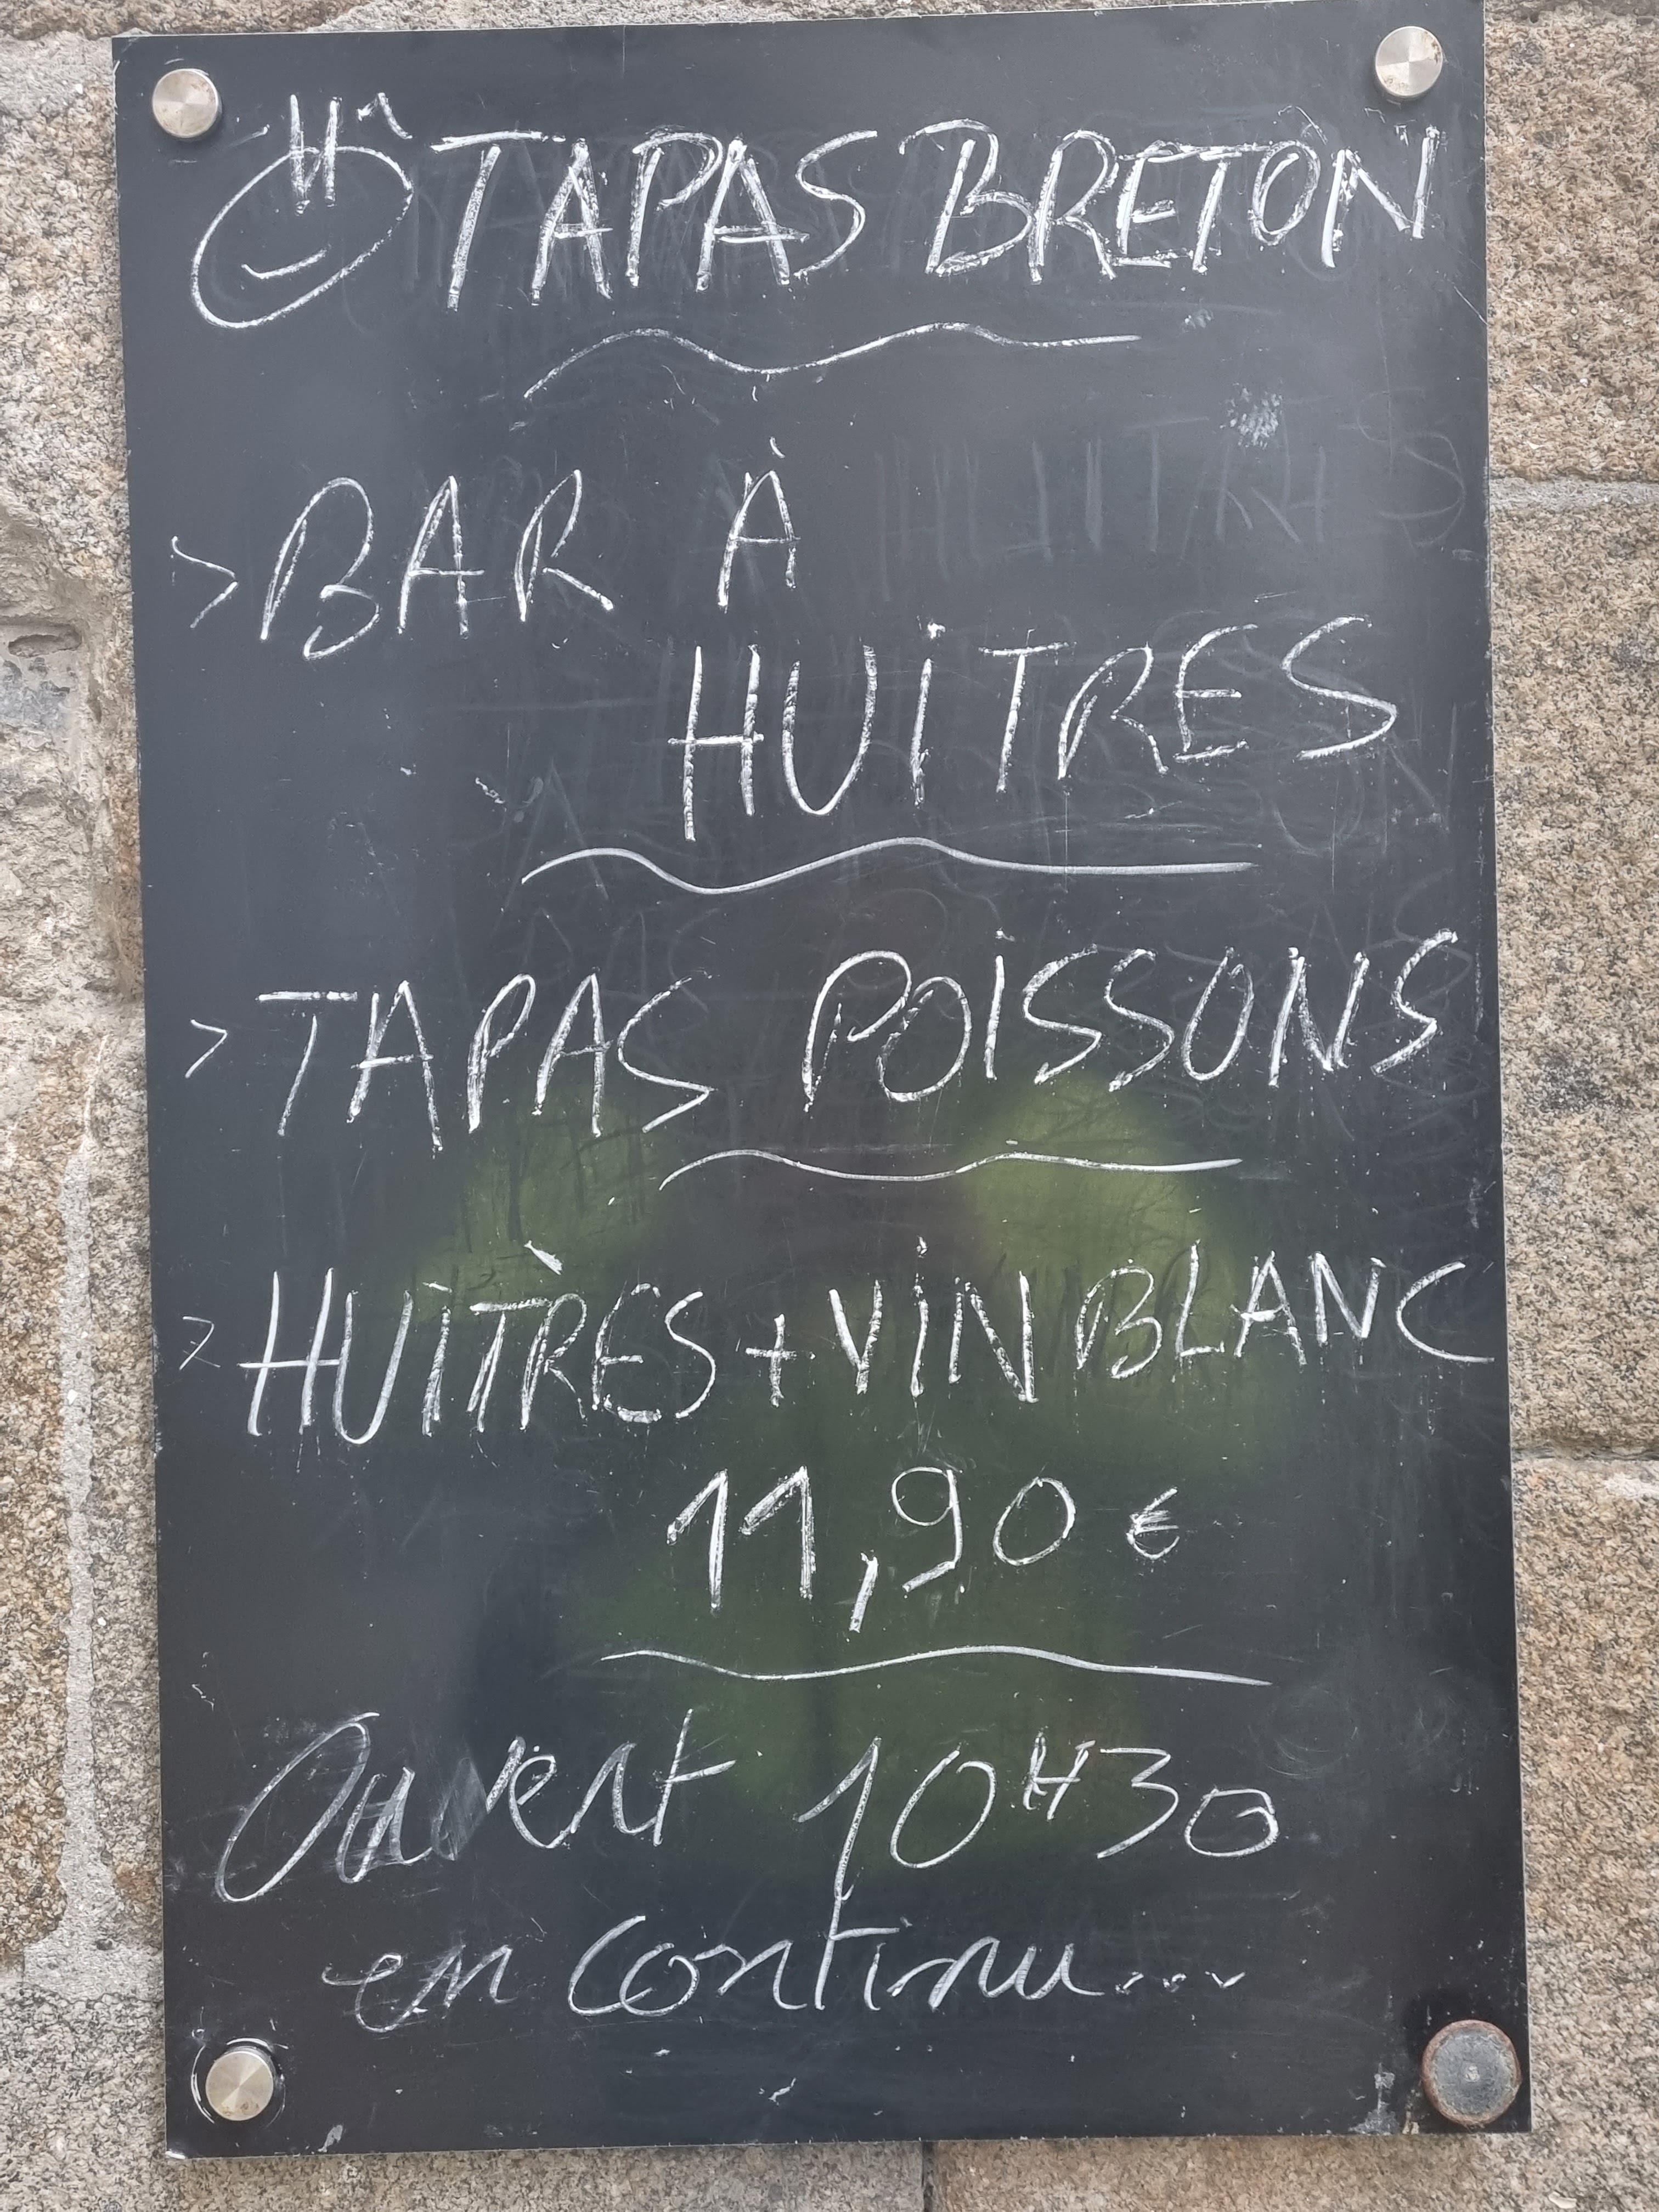 Ô TAPAS BRETON
> BAR À
HUITRES
> TAPAS POISSONS
> HUITRES + VIN BLANC
11,90 €
Ouvert 10H30
en continu...